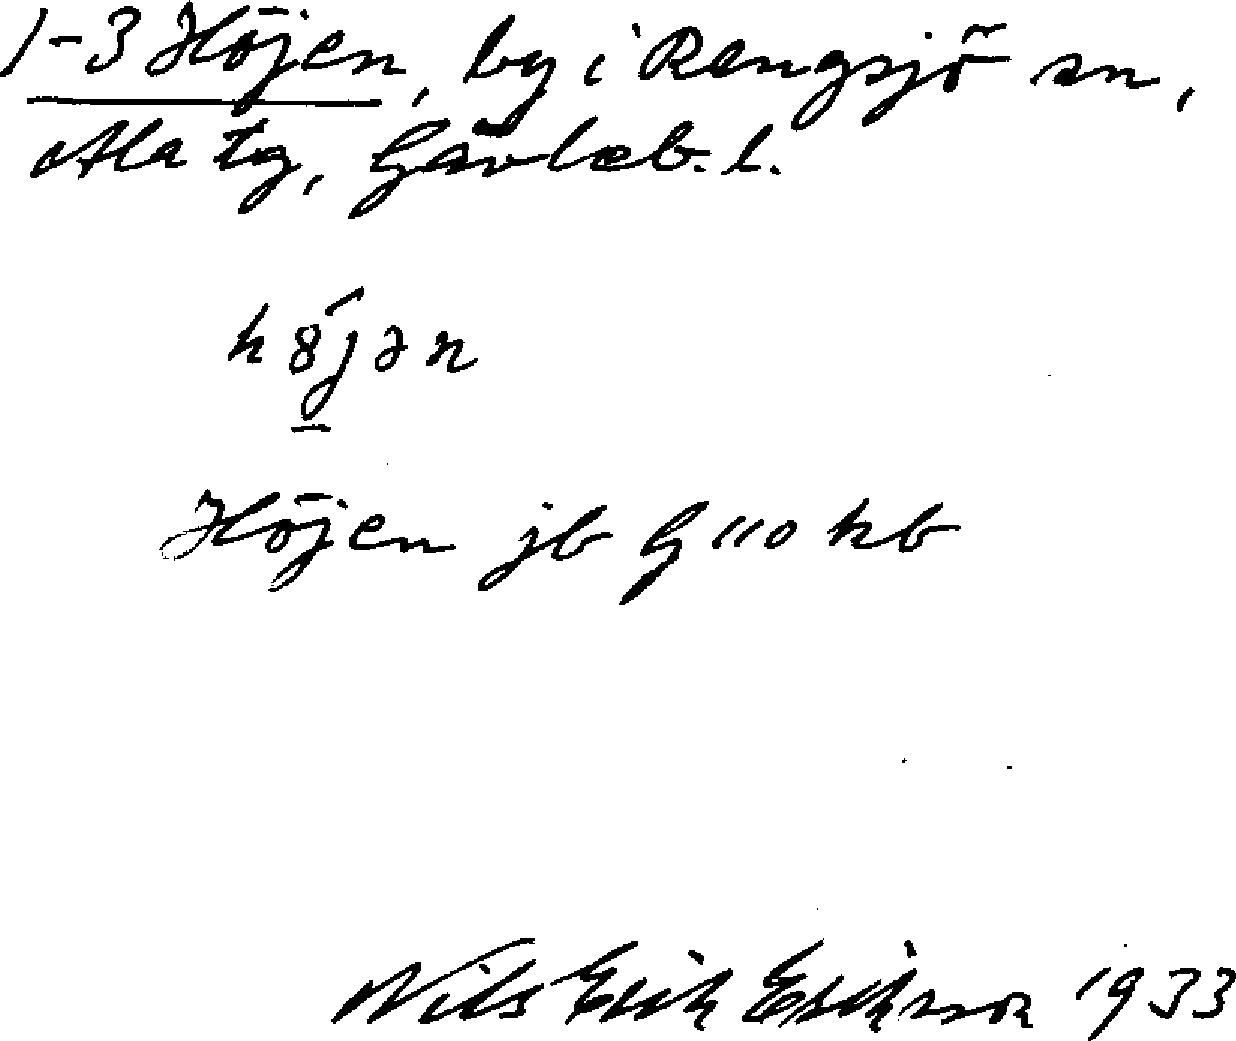 1-3 Höjen, by i Rengsjö sn,
Ala tg, Gävleb. l.
hö́jən
Höjen jb G 110 hb
Nils Erik Eriksson 1933